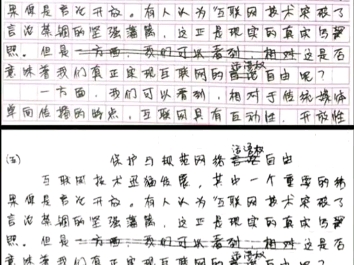 果便是言论开放。有人认为"互联网技术突破了
言论禁锢的坚强藩篱,这正是现实的真成写
照。但是一方面,我们可以看到,相对这是否
话语权
意味着我们真正实现互联网的言论自由呢?
一方面,我们可以看到,相对于传统媒体
单向传播的特点,互联网具有互动性、开放性
(五)
话语权
保护与规范网络言论自由
互联网技术迅猛发展,其中一个重要的结
果便是言论开放。有人认为"互联网技术突破了
言论禁锢的坚强藩篱,这正是现实的真成写
照。但是一方面,我们可以看到,相对这是否
话语权
意味着我们真正实现互联网的言论自由呢?